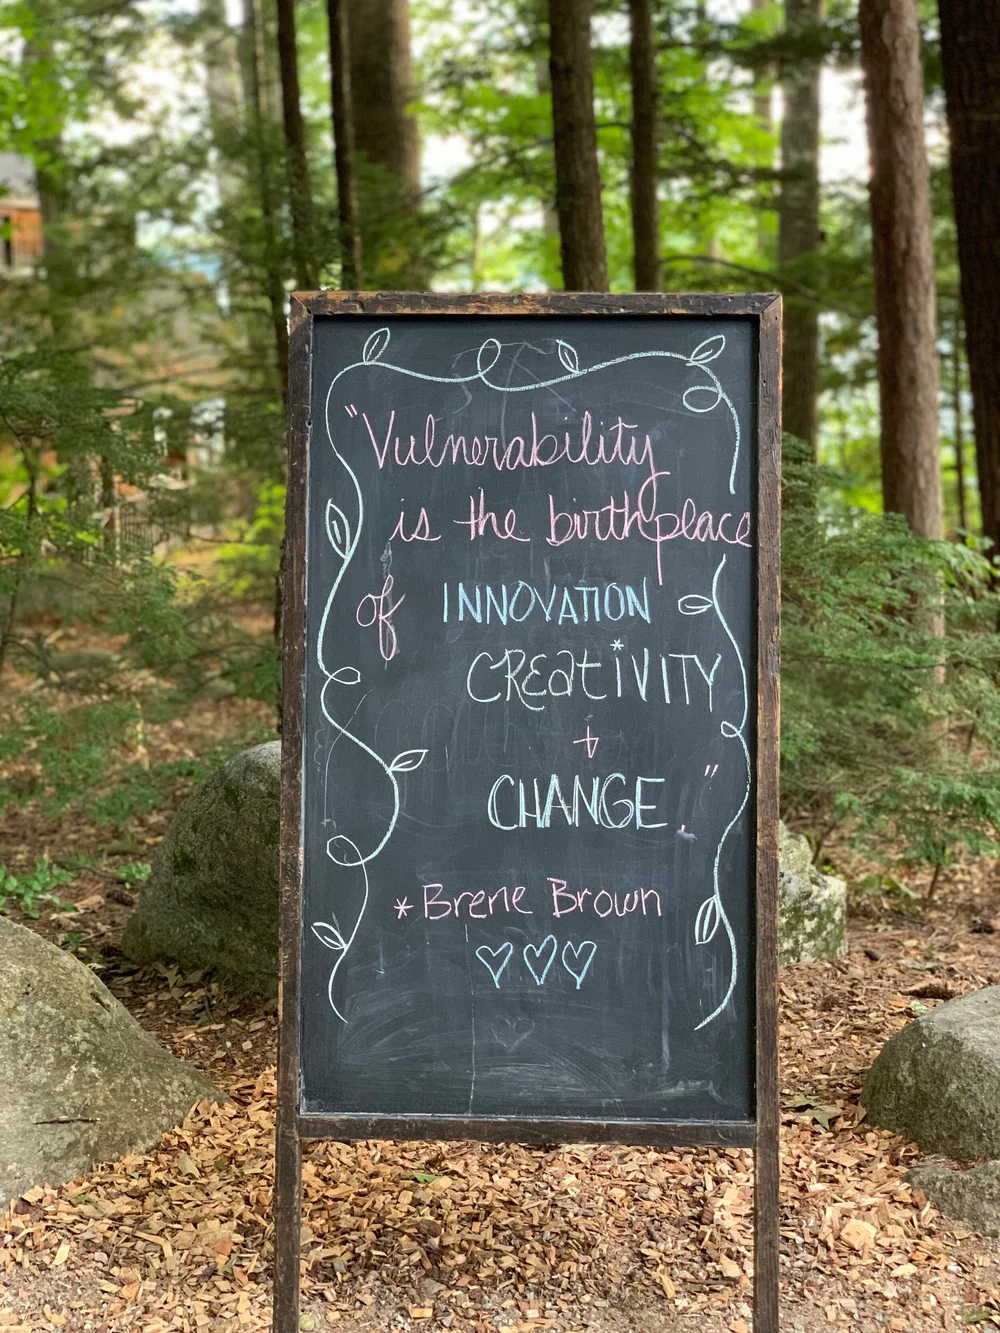 "Vulnerability
is the birthplace
of INNOVATION
CREatiVITY
+
CHANGE."
*Brene Brown